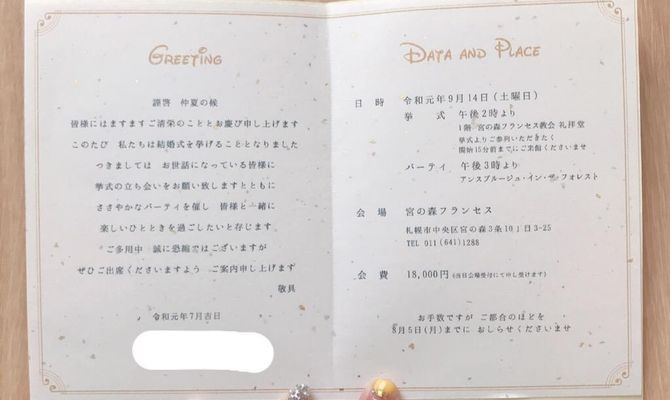 GREETING
謹啓 仲夏の候
皆様にはますますご清栄のこととお慶び申し上げます
このたび 私たちは結婚式を挙げることとなりました
つきましては お世話になっている皆様に
挙式の立ち会いをお願い致しますとともに
ささやかなパーティを催し 皆様と一緒に
楽しいひとときを過ごしたいと存じます
ご多用中 誠に恐縮ではございますが
ぜひご出席くださいますよう ご案内申し上げます
敬具
令和元年7月吉日
DATA AND PLACE
日 時 令和元年9月14日(土曜日)
挙 式 午後2時より
1階 宮の森フランセス教会 礼拝堂
挙式よりご参列いただきたく
開始15分前までにご来館くださいませ
パーティ 午後3時より
アンスプルージュ・イン・ザ・フォレスト
会 場 宮の森フランセス
札幌市中央区宮の森3条10丁目3-25
TEL 011(641)1288
会 費 18,000円(当日会場受付にて申し受けます)
お手数ですが ご都合のほどを
8月5日(月)までに おしらせくださいませ